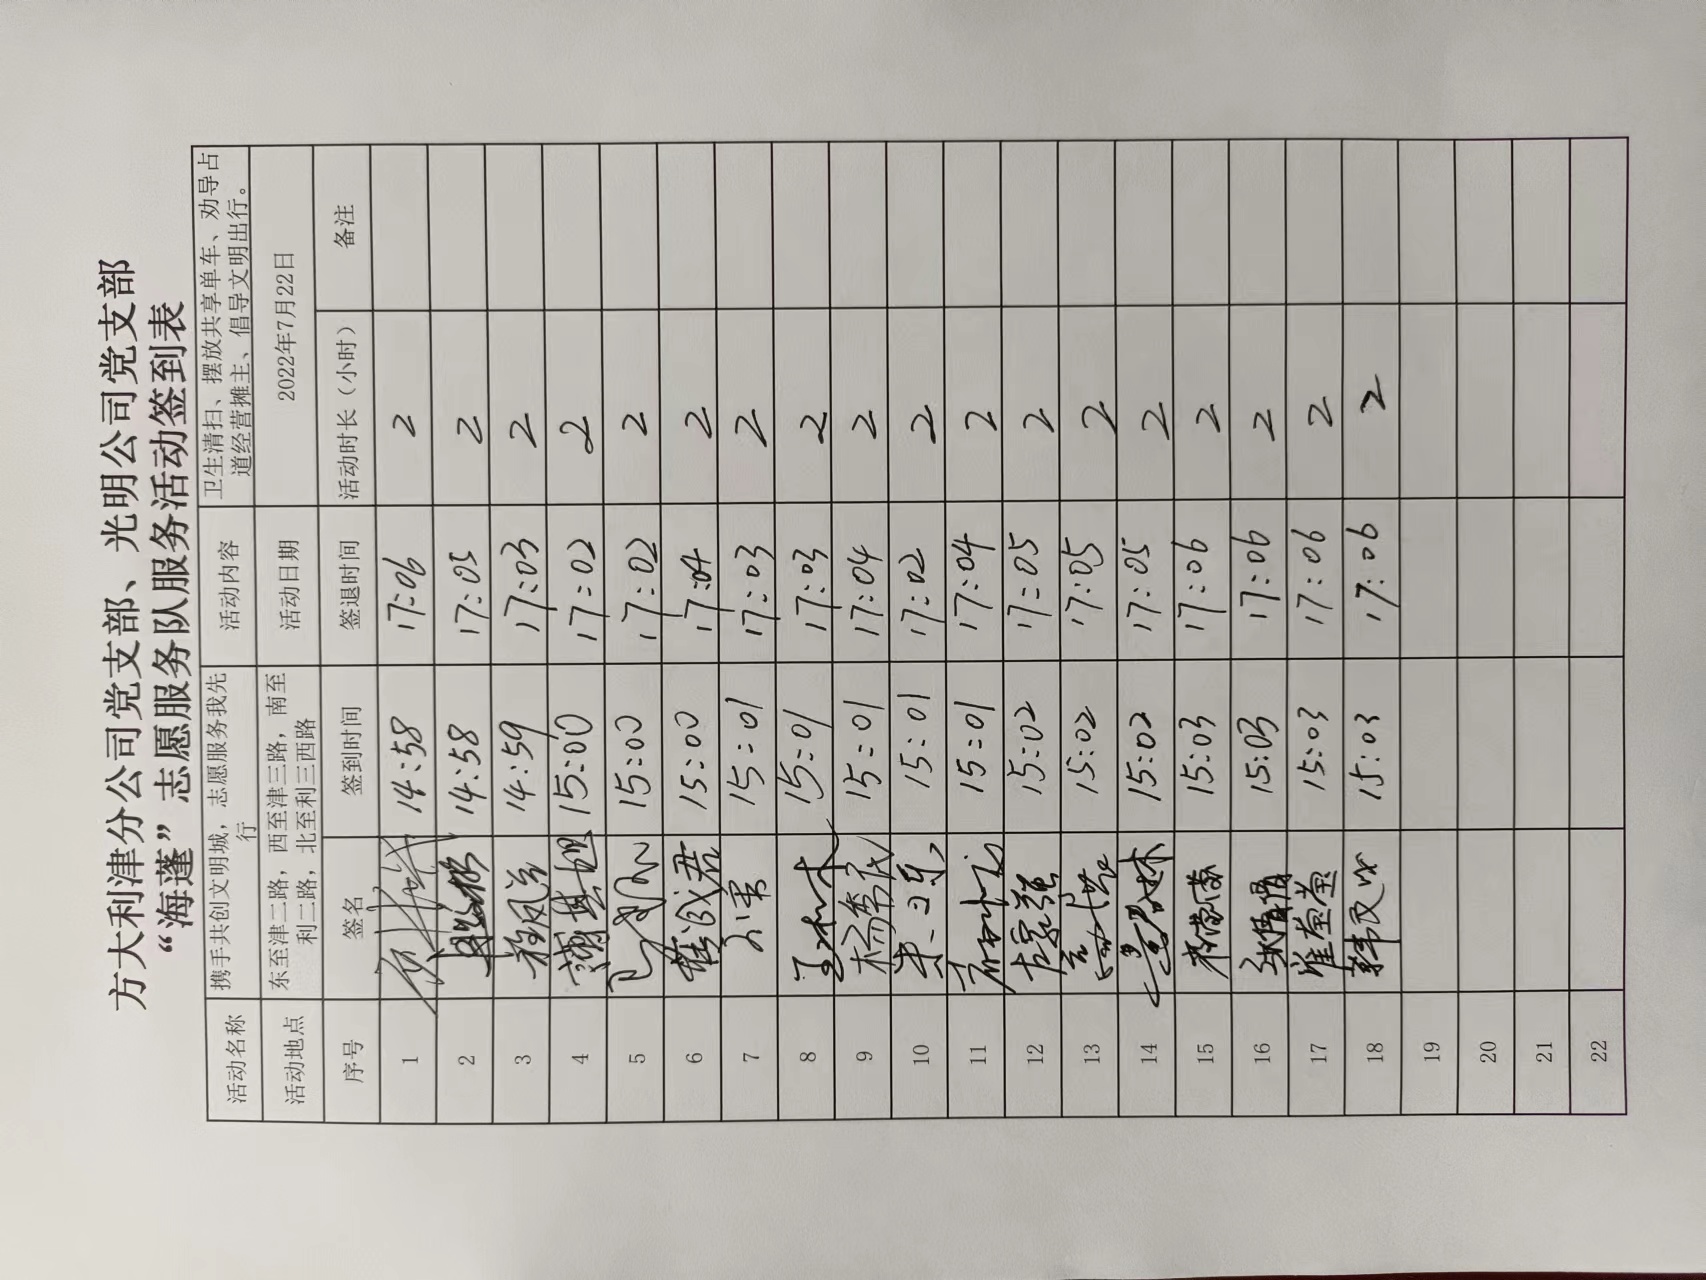 方大利津分公司党支部、光明公司党支部
“海蓬”志愿服务队服务活动签到表
活动名称 携手共创文明城，志愿服务我先行 活动内容 卫生清扫、摆放共享单车、劝导占道经营摊主、倡导文明出行。
活动地点 东至津二路，西至津三路，南至利二路，北至利三西路 活动日期 2022年7月22日
序号 签名 签到时间 签退时间 活动时长（小时） 备注
1 14:58 17:06 2
2 14:58 17:05 2
3 14:59 17:03 2
4 15:00 17:02 2
5 15:00 17:02 2
6 15:00 17:04 2
7 15:01 17:03 2
8 15:01 17:03 2
9 15:01 17:04 2
10 15:01 17:02 2
11 15:01 17:04 2
12 15:02 17:05 2
13 15:02 17:05 2
14 15:02 17:05 2
15 15:03 17:06 2
16 15:03 17:06 2
17 崔莹莹 15:03 17:06 2
18 15:03 17:06 2
19
20
21
22